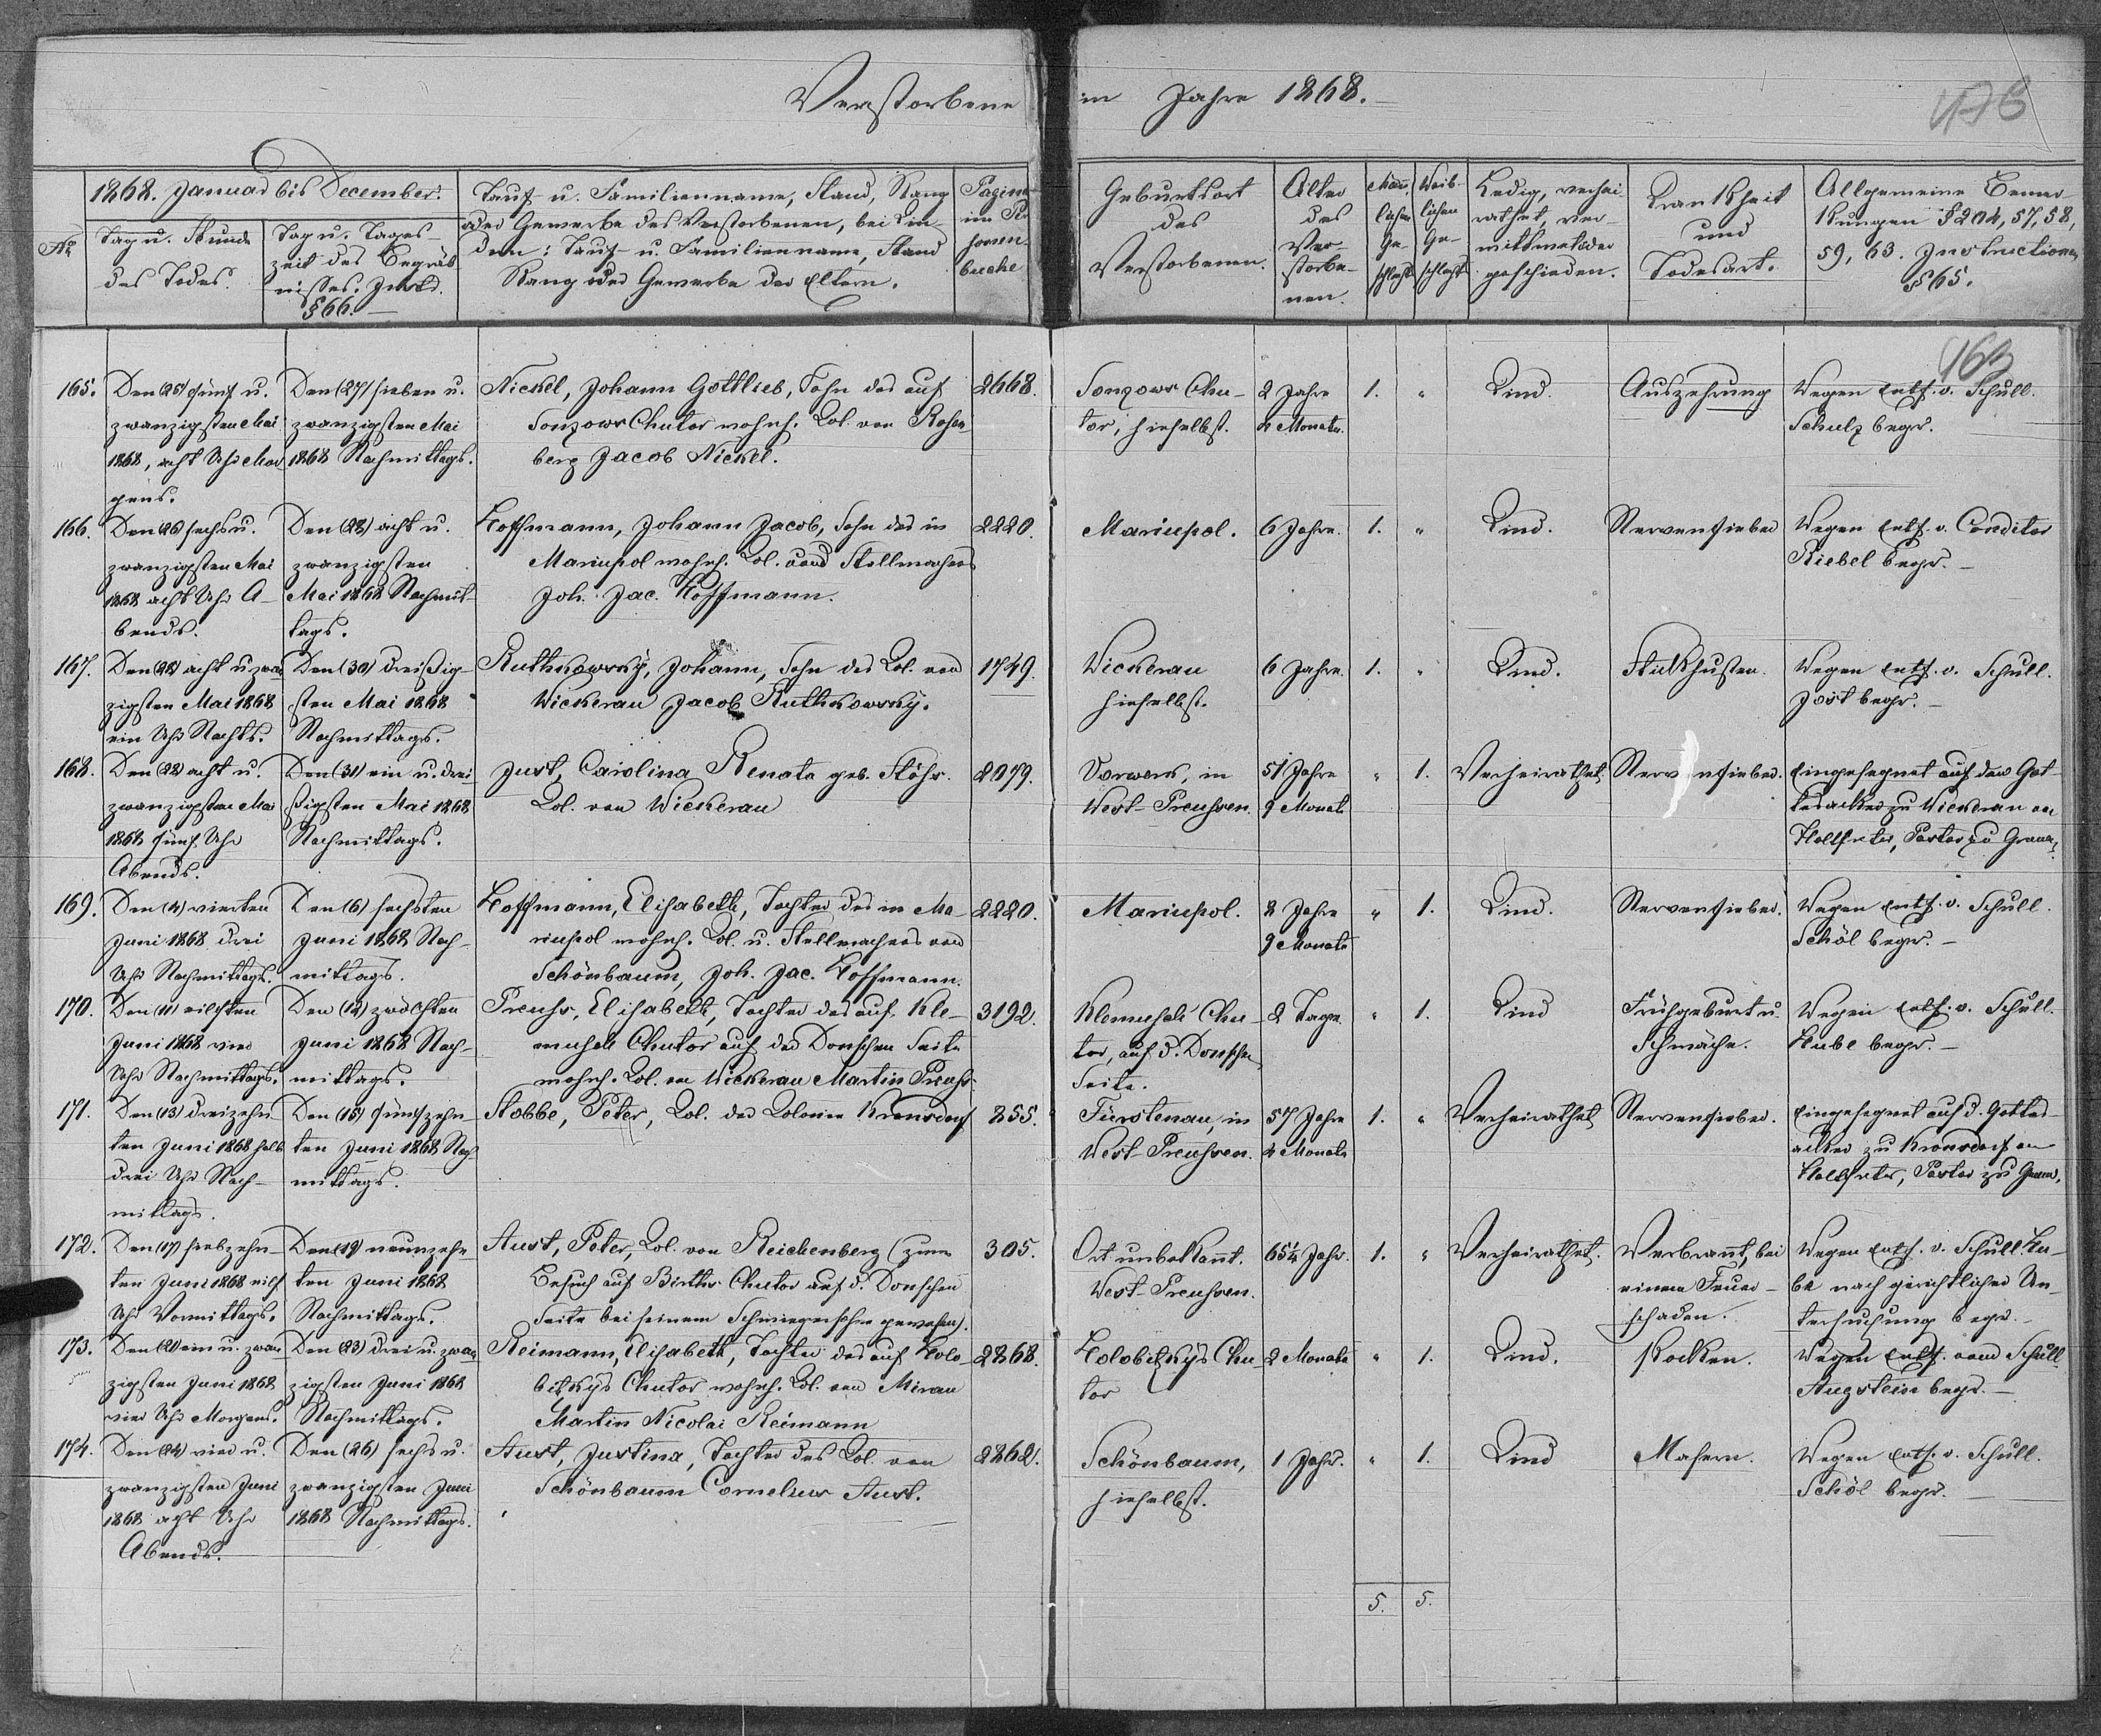 Verstorbene im Jahre 1868.
1868. Januar bis December.
№
Tag u. Stunde
des Todes.
Tag u. Tages-
zeit des Begräb-
nisses. Instr.
§ 66.
Tauf- u. Familienname, Stand, Rang
oder Gewerbe des Verstorbenen, bei Kin-
dern: Tauf- u. Familienname, Stand
Rang oder Gewerbe der Eltern.
Pagina
im
buche
Geburtsort
des
Verstorbenen.
Alter
des
Ver-
storbe-
nen.
Männ-
lichen
Ge-
schlechts
Weib-
lichen
Ge-
schlechts
Ledig, verhei-
rathet, ver-
wittwet oder
geschieden.
Krankheit
und
Todesart.
Allgemeine Bemer-
kungen § 204, 57, 58,
59, 63. Instruction
§ 65.
163
165.
Den (25) fünf u.
zwanzigsten Mai
1868, acht Uhr Mor-
gens.
Den (27) sieben u.
zwanzigsten Mai
1868 Nachmittags.
Nickel, Johann Gottlieb, Sohn des auf
Sonzows Chutor wohnh. Col. von Rosen-
berg Jacob Nickel.
2668.
Sonzows Chu-
tor, hieselbst.
2 Jahre
4 Monate.
1.
"
Kind.
Auszehrung
Wegen Entf. v. Schull.
Schulz begr.
166.
Den (26) sechs u.
zwanzigsten Mai
1868 acht Uhr A-
bends.
Den (28) acht u.
zwanzigsten
Mai 1868 Nachmit-
tags.
Hoffmann, Johann Jacob, Sohn des in
Mariupol wohnh. Col. und Stellmachers
Joh. Jac. Hoffmann.
2220.
Mariupol.
6 Jahre.
1.
"
Kind.
Nervenfieber
Wegen Entf. v. Conditor
Riebel begr.
167.
Den (28) acht u. zwan-
zigsten Mai 1868
ein Uhr Nachts.
Den (30) dreißig-
sten Mai 1868
Nachmittags.
Ruthkowsky, Johann, Sohn des Col. von
Wickerau Jacob Ruthkowsky.
1749.
Wickerau
hieselbst.
6 Jahre.
1.
"
Kind.
Stickhusten.
Wegen Entf. v. Schull.
Jost begr.
168.
Den (28) acht u.
zwanzigsten Mai
1868 fünf Uhr
Abends.
Den (31) ein u. drei-
ßigsten Mai 1868
Nachmittags.
Just, Carolina Renata geb. Stöhr.
Col. von Wickerau
2079.
Vorwerk, in
West-Preussen.
51 Jahre
9 Monate
"
1.
Verheirathet.
Nervenfieber.
Eingesegnet auf dem Got-
tesacker zu Wickerau von
Holtfreter, Pastor zu Grunau.
169.
Den (4) vierten
Juni 1868 drei
Uhr Nachmittags.
Den (6) sechsten
Juni 1868 Nach-
mittags.
Hoffmann, Elisabeth, Tochter des in Ma-
riupol wohnh. Col. u. Stellmachers von
Schönbaum, Joh. Jac. Hoffmann.
2220.
Mariupol.
2 Jahre
9 Monate
"
1.
Kind.
Nervenfieber.
Wegen Entf. v. Schull.
Schöl begr.
170.
Den (11) eilften
Juni 1868 vier
Uhr Nachmittags.
Den (12) zwölften
Juni 1868 Nach-
mittags.
Preuss, Elisabeth, Tochter des auf Kle-
Chutor auf der Donschen Seite
wohnh. Col. von Wickerau Martin Preuss.
3192.
Chu-
tor, auf d. Donschen
Seite.
2 Tage.
"
1.
Kind
Frühgeburt u.
Schwäche.
Wegen Entf. v. Schull.
Hube begr.
171.
Den (13) dreizehn-
ten Juni 1868 halb
drei Uhr Nach-
mittags.
Den (15) fünfzehn-
ten Juni 1868 Nach-
mittags.
Stobbe, Peter, Col. der Colonie Kronsdorf
855.
Fürstenau, in
West-Preussen.
57 Jahre
4 Monate
1.
"
Verheirathet
Nervenfieber.
Eingesegnet auf d. Gottes-
acker zu Kronsdorf von
Holtfreter, Pastor zu Grunau.
172.
Den (17) siebzehn-
ten Juni 1868 eilf
Uhr Vormittags.
Den (19) neunzehn-
ten Juni 1868
Nachmittags.
Aust, Peter, Col. von Reichenberg (zum
Besuch auf Births Chutor auf d. Donschen
Seite bei seinem Schwiegersohn gewesen).
305.
Ort unbekannt.
West-Preussen.
65¼ Jahr.
1.
"
Verheirathet.
Verbrannt, bei
einem Feuer-
schaden.
Wegen Entf. v. Schull. Hu-
be nach gerichtlicher Un-
tersuchung begr.
173.
Den (21) ein u. zwan-
zigsten Juni 1868
vier Uhr Morgens.
Den (23) drei u. zwan-
zigsten Juni 1868
Nachmittags.
Reimann, Elisabeth, Tochter des auf Kolo-
bitzkys Chutor wohnh. Col. von Mirau
Martin Nicolai Reimann
2868.
Kolobitzkys Chu-
tor
2 Monate
"
1.
Kind.
Pocken.
Wegen Entf. vom Schull.
Augstein begr.
174.
Den (24) vier u.
zwanzigsten Juni
1868 acht Uhr
Abends.
Den (26) sechs u.
zwanzigsten Juni
1868 Nachmittags.
Aust, Justina, Tochter des Col. von
Schönbaum Cornelius Aust.
2862.
Schönbaum,
hieselbst.
1 Jahr.
"
1.
Kind
Masern.
Wegen Entf. v. Schull.
Schöl begr.
5. 5.